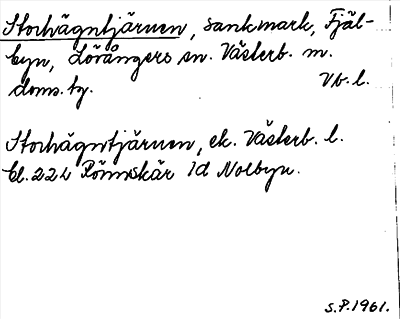 Storhägntjärnen, sankmark, Fjäl-
byn, Lövångers sn. Västerb. m.
doms. tg. Vb. l.
Storhägntjärnen, ek. Västerb. l.
bl. 22 L Rönnskär 1d Nolbyn.
S.P. 1961.